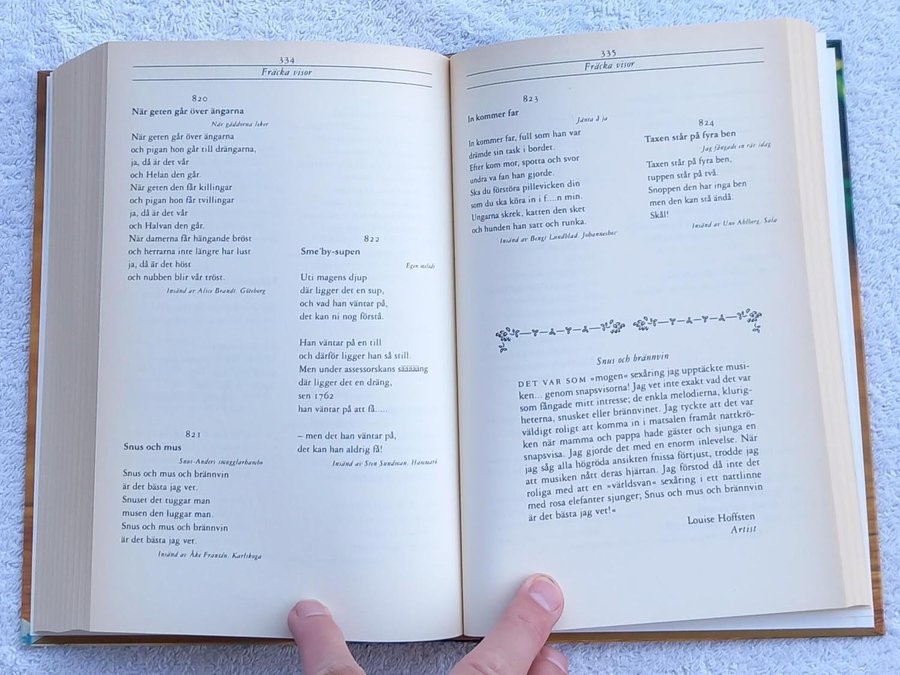 334
Fräcka visor
820
När geten går över ängarna
När gäddorna leker
När geten går över ängarna
och pigan hon går till drängarna,
ja, då är det vår
och Helan den går.
När geten den får killingar
och pigan hon får tvillingar
ja, då är det vår
och Halvan den går.
När damerna får hängande bröst
och herrarna inte längre har lust
ja, då är det höst
och nubben blir vår tröst.
Insänd av Alice Brandt, Göteborg
821
Snus och mus
Snus-Anders smugglarbambo
Snus och mus och brännvin
är det bästa jag vet.
Snuset det tuggar man
musen den luggar man.
Snus och mus och brännvin
är det bästa jag vet.
Insänd av Åke Franzén, Karlskoga
822
Sme'by-supen
Egen melodi
Uti magens djup
där ligger det en sup,
och vad han väntar på,
det kan ni nog förstå.
Han väntar på en till
och därför ligger han så still.
Men under assessorskans säääääng
där ligger det en dräng,
sen 1762
han väntar på att få.....
– men det han väntar på,
det kan han aldrig få!
Insänd av Sten Sundman, Hanmark
335
Fräcka visor
823
In kommer far
Jänta å ja
In kommer far, full som han var
drämde sin task i bordet.
Efter kom mor, spotta och svor
undra va fan han gjorde.
Ska du förstöra pillevicken din
som du ska köra in i f....n min.
Ungarna skrek, katten den sket
och hunden han satt och runka.
Insänd av Bengt Landblad, Johanneshov
824
Taxen står på fyra ben
Jag fångade en räv idag
Taxen står på fyra ben,
tuppen står på två.
Snoppen den har inga ben
men den kan stå ändå.
Skål!
Insänd av Uno Ahlberg, Sala
Snus och brännvin
DET VAR SOM »mogen« sexåring jag upptäckte musi-
ken... genom snapsvisorna! Jag vet inte exakt vad det var
som fångade mitt intresse; de enkla melodierna, klurig-
heterna, snusket eller brännvinet. Jag tyckte att det var
väldigt roligt att komma in i matsalen framåt nattkrö-
ken när mamma och pappa hade gäster och sjunga en
snapsvisa. Jag gjorde det med en enorm inlevelse. När
jag såg alla högröda ansikten fnissa förtjust, trodde jag
att musiken nått deras hjärtan. Jag förstod då inte det
roliga med att en »världsvan« sexåring i ett nattlinne
med rosa elefanter sjunger; Snus och mus och brännvin
är det bästa jag vet!«
Louise Hoffsten
Artist